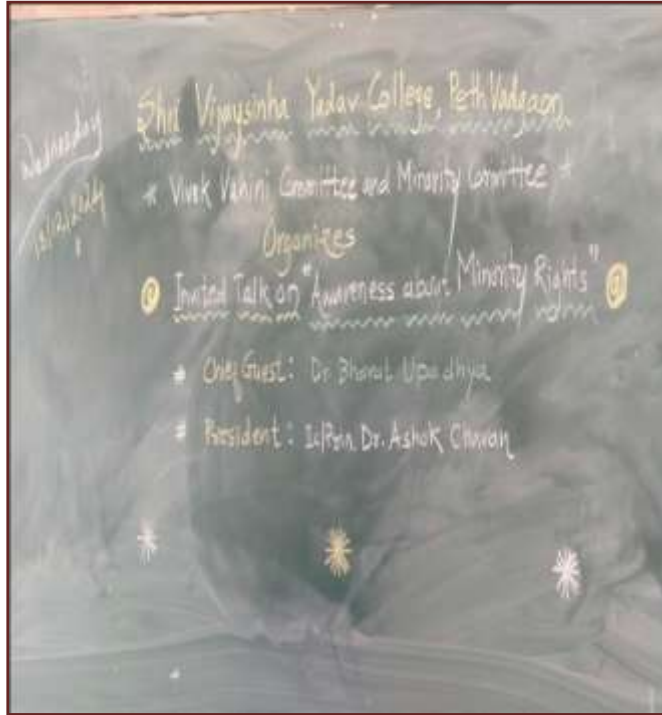 Wednesday
Shri Vijaysinha Yadav College, Peth Vadgaon
* Vivek Vahini Committee and Minority Committee *
Organizes
Invited Talk on "Awareness about Minority Rights"
* Chief Guest: Dr. Bharat Upadhya
* President: Ic/Prin. Dr. Ashok Chavan